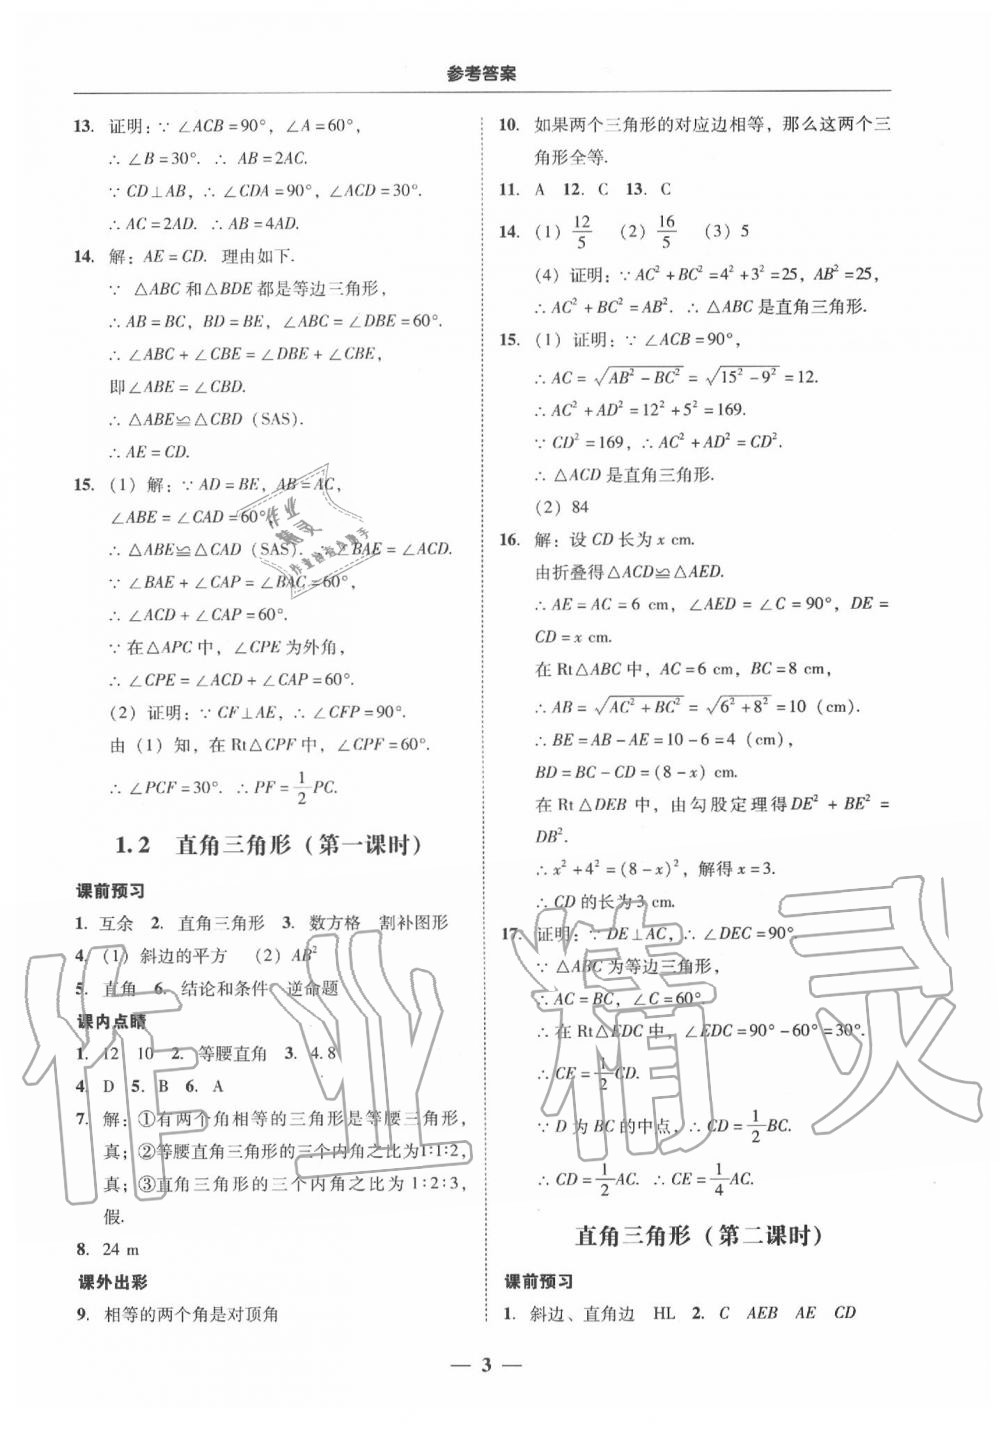 参考答案
13. 证明：∵ ∠ACB=90°，∠A=60°，
∴ ∠B=30°. ∴ AB=2AC.
∵ CD⊥AB，∴ ∠CDA=90°，∠ACD=30°.
∴ AC=2AD. ∴ AB=4AD.
14. 解：AE=CD. 理由如下.
∵ △ABC 和△BDE 都是等边三角形，
∴ AB=BC，BD=BE，∠ABC=∠DBE=60°.
∴ ∠ABC+∠CBE=∠DBE+∠CBE，
即∠ABE=∠CBD.
∴ △ABE≌△CBD（SAS）.
∴ AE=CD.
15.（1）解：∵ AD=BE，AB=AC，
∠ABE=∠CAD=60°，
∴ △ABE≌△CAD（SAS）. ∴ ∠BAE=∠ACD.
∵ ∠BAE+∠CAP=∠BAC=60°，
∴ ∠ACD+∠CAP=60°.
∵ 在△APC 中，∠CPE 为外角，
∴ ∠CPE=∠ACD+∠CAP=60°.
（2）证明：∵ CF⊥AE，∴ ∠CFP=90°.
由（1）知，在 Rt△CPF 中，∠CPF=60°.
∴ ∠PCF=30°. ∴ PF=1/2PC.
1.2 直角三角形（第一课时）
课前预习
1. 互余 2. 直角三角形 3. 数方格 割补图形
4.（1）斜边的平方 （2）AB²
5. 直角 6. 结论和条件 逆命题
课内点睛
1. 12 10 2. 等腰直角 3. 4.8
4. D 5. B 6. A
7. 解：①有两个角相等的三角形是等腰三角形，
真；②等腰直角三角形的三个内角之比为1∶1∶2，
真；③直角三角形的三个内角之比为1∶2∶3，
假.
8. 24 m
课外出彩
9. 相等的两个角是对顶角
10. 如果两个三角形的对应边相等，那么这两个三
角形全等.
11. A 12. C 13. C
14.（1）12/5 （2）16/5 （3）5
（4）证明：∵ AC²+BC²=4²+3²=25，AB²=25，
∴ AC²+BC²=AB². ∴ △ABC 是直角三角形.
15.（1）证明：∵ ∠ACB=90°，
∴ AC=√(AB²−BC²)=√(15²−9²)=12.
∴ AC²+AD²=12²+5²=169.
∵ CD²=169，∴ AC²+AD²=CD².
∴ △ACD 是直角三角形.
（2）84
16. 解：设 CD 长为 x cm.
由折叠得△ACD≌△AED.
∴ AE=AC=6 cm，∠AED=∠C=90°，DE=
CD=x cm.
在 Rt△ABC 中，AC=6 cm，BC=8 cm，
∴ AB=√(AC²+BC²)=√(6²+8²)=10（cm）.
∴ BE=AB−AE=10−6=4（cm），
BD=BC−CD=（8−x）cm.
在 Rt△DEB 中，由勾股定理得DE²+BE²=
DB².
∴ x²+4²=（8−x）²，解得 x=3.
∴ CD 的长为 3 cm.
17. 证明：∵ DE⊥AC，∴ ∠DEC=90°.
∵ △ABC 为等边三角形，
∴ AC=BC，∠C=60°.
∴ 在 Rt△EDC 中，∠EDC=90°−60°=30°.
∴ CE=1/2CD.
∵ D 为 BC 的中点，∴ CD=1/2BC.
∴ CD=1/2AC. ∴ CE=1/4AC.
直角三角形（第二课时）
课前预习
1. 斜边、直角边 HL 2. C AEB AE CD
— 3 —
作业精灵
作业
精灵
作业检查小助手